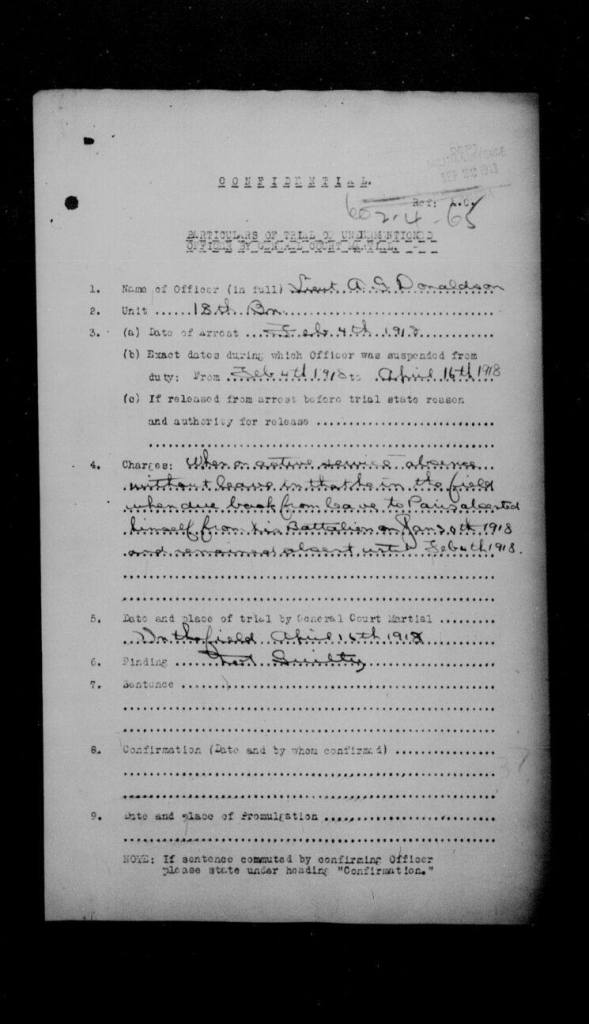 CONFIDENTIAL.
Ref: A.C.
602-4-65
PARTICULARS OF TRIAL OF UNDERMENTIONED
OFFICER BY GENERAL COURT MARTIAL.
1. Name of Officer (in full) Lieut A G Donaldson
2. Unit ....18th Bn....
3. (a) Date of Arrest ...Feb. 4th 1918
(b) Exact dates during which Officer was suspended from
duty: From Feb 4th 1918 to April 16th 1918
(c) If released from arrest before trial state reason
and authority for release
4. Charges: When on active service absence
without leave in that he in the field
when due back from leave to Paris absented
himself from his Battalion on Jan 30th 1918
and remained absent until Feb 4th 1918.
5. Date and place of trial by General Court Martial
In the field April 16th 1918
6. Finding .... Not Guilty
7. Sentence
8. Confirmation (Date and by whom confirmed)
9. Date and place of Promulgation
NOTE: If sentence commuted by confirming Officer
please state under heading "Confirmation."